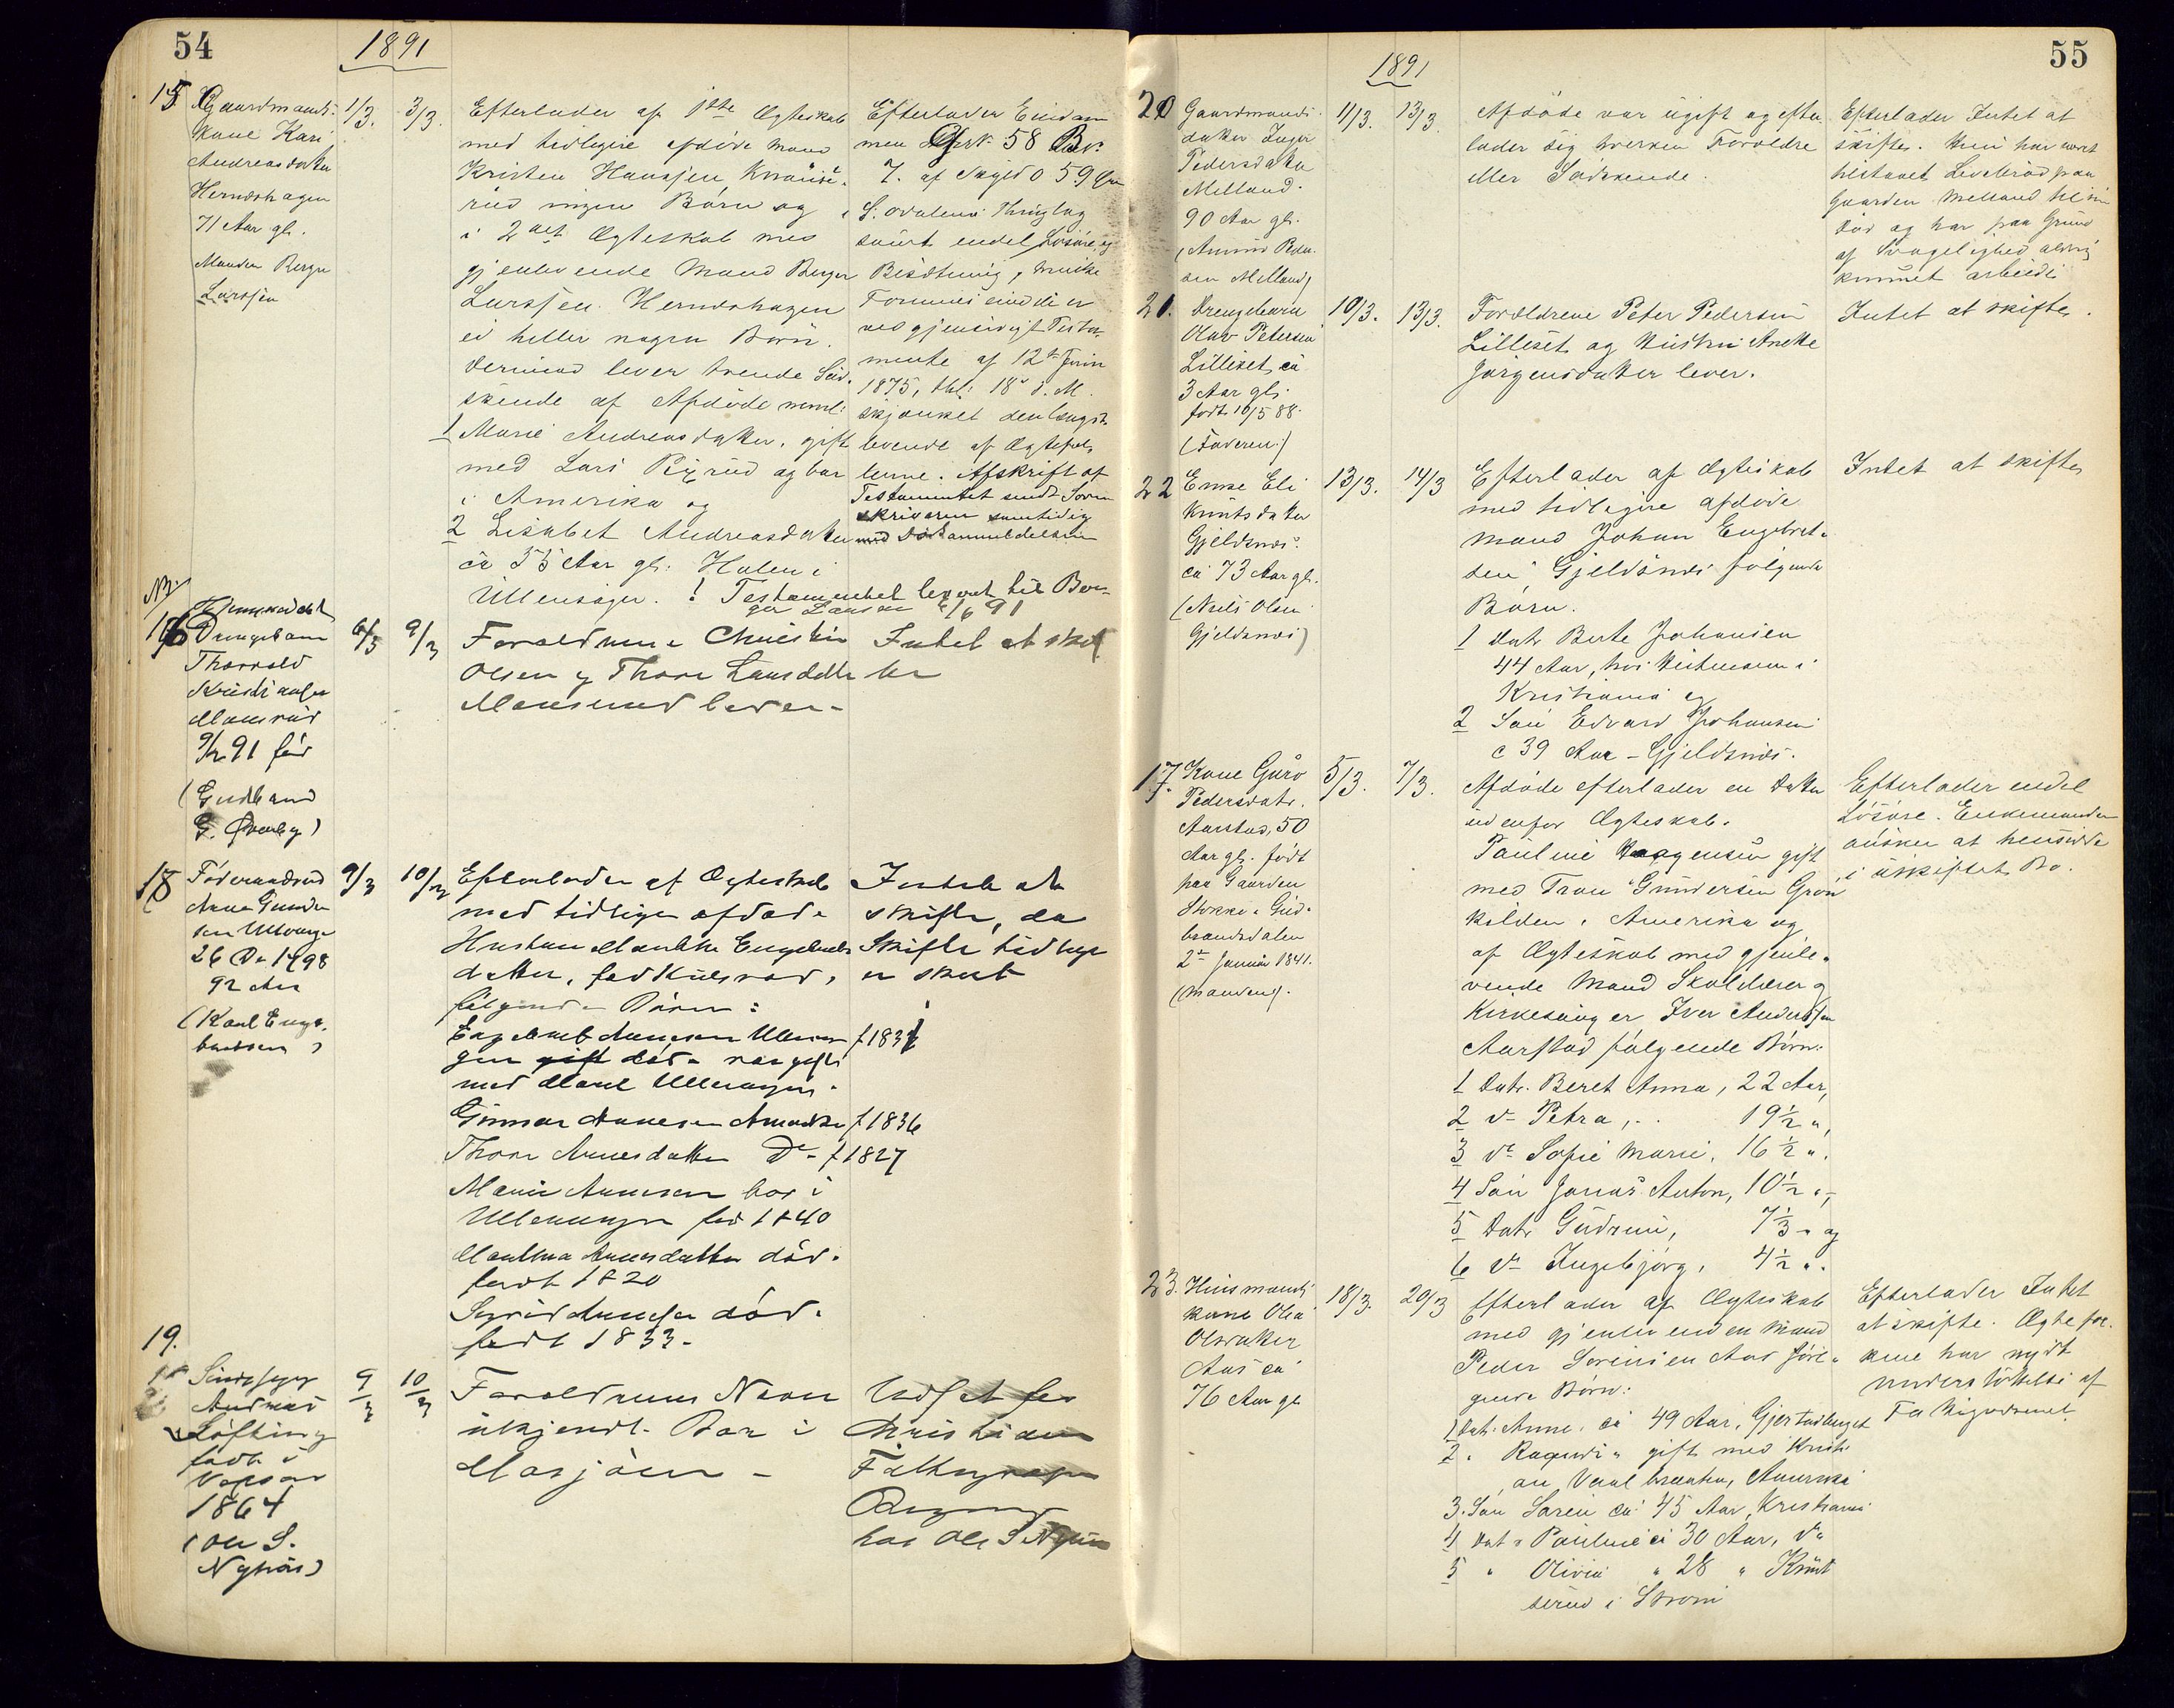 54
1891
15
Gaardmands-
kone Kari
Andreasdatter
Herneshagen
71 Aar gl.
Manden Berger
Larssen
1/3.
3/3.
Efterlader af 1ste Ægteskab
med tidligere afdøde Mand
Kristen Hanssen
rud ingen Børn og
i 2det Ægteskab med
gjenlevende Mand Berger
Larssen Herneshagen
ei heller nogen Børn.
Derimod lever trende Sød-
skende af Afdøde neml:
1 Marie Andreasdatter, gift
med Lars og bor
i Amerika og
2 Lisabet Andreasdatter
ca 55 Aar gl. Holen i
Ullensager. ! Testamentet leveret til Ber-
ger Larssen 6/6 91
Efterlader Eiendom
men Gr. No. 58 Br.
7. af Skyld 0 59 Øre
S: Odalens Thinglag
samt endel Løsøre og
Besætning, hvilke
Formueseiendele er
ved gjensidigt Testa-
mente af 12te Juni
1875, thl: 18de d. M.
skjænket den længst-
levende af Ægtefol-
kene. Afskrift af
Testamentet sendt Soren
skriveren samtidig
med Dødsanmeldelsen
NB.
16
Drengebarn
Thorvald
Kristiansen
Mamrud
9/2 91 fød
(Gudbrand
G. Øvreby)
6/3
9/3
Forældrene Christian
Olsen og Thora Larsdatter
lever-
Intet at skif
ter
18
Føderaadsmd
Arne Gunder
sen Ullvange
26 De 1798
92 Aar
(Karl Enge-
bretsen)
9/3
10/3
Efterlader af Ægteskab
med tidligere afdøde
Hustru Marthe Engebrets
datter, fød Kulsrud,
følgende Børn:
Engebret Arnesen Ullern
gen gift død - var gift
med Marie Ullerengen.
Gunnar Arnesen Amerika
Thora Arnesdatter Do -
Marie Arnesen bor i
Ullerengen fød 1840
Marthea Arnesdatter død.
født 1820
Sigrid Arnesen død.
født 1833-
Intet at
skifte, da
Skifte tidlige
er skeet
f 183
f 1836
f 1827
19.
Andreas
Løfting
født i
Vefsen
1864
(Ole S.
Nyhus)
9/3
10/3
Forældrenes Navn
ukjendt. Bor i
Mosjøen -
hos Ole S Nyhus
55
1891
20
Gaardmands-
datter Inger
Pedersdatter
Melland.
90 Aar gl.
(Amund Peder-
sen Melland)
11/3.
13/3.
Afdøde var ugift og efter-
lader sig hverken Forældre
eller Sødskende.
Efterlader Intet at
skifte. Hun har været
tilstaaet Levebrød paa
Gaarden Melland til sin
Død og har paa Grund
af Svagelighed aldrig
kunnet arbeide
21.
Drengebarn
Olav Petersen
Lilleset, ca
3 Aar gl.
født 10/5 88.
(Faderen.)
10/3.
13/3.
Forældrene Peter Pedersen
Lilleset og Hustru Anette
Jørgensdatter lever.
Intet at skifte.
22
Enke Eli
Knutsdatter
Gjeldsnes.
ca 73 Aar gl.
(Niels Olsen
Gjeldsnes)
13/3.
14/3
Efterlader af Ægteskab
med tidligere afdøde
Mand Johan Engebret-
sen Gjeldsnes følgende
Børn.
1 Datr Berte Johansen
44 Aar, hos i
Kristiania og
2 Søn Edvard Johansen
c 39 Aar - Gjeldsnes.
Intet at skifte
17.
Kone Guro
Pedersdatr.
Aarstad, 50
Aar gl. født
paa Gaarden
Stokke i Gud-
brandsdalen
2de Januar 1841.
(Manden).
5/3.
7/3.
Afdøde efterlader en Datter
udenfor Ægteskab.
Pauline Jørgensen gift
med Tron Gundersen Grøn
kilden i Amerika og
af Ægteskab med gjenle-
vende Mand Skolelærer og
Kirkesanger Iver Anderssen
Aarstad følgende Børn:
1 Datr. Beret Anna, 22 Aar,
2 do Petra, .. 19½ ",
3 do Sofie Marie, 16½ ".
4 Søn Jonas Anton, 10½ ",
5 Datr Gudrun, 7⅓ " og
6 do Ingebjørg, 4½ ".
Efterlader endel
Løsøre. Enkemanden
ønsker at hensidde
i uskiftet Bo.
23.
Husmands-
kone Olea
Olsdatter
Aas ca
76 Aar gl
18/3.
20/3
Efterlader af Ægteskab
med gjenlevenden Mand
Peder Sørensen Aas føl-
gende Børn:
1 Datr. Anne, ca 49 Aar, Gjertrudberget
2 " Ragnd " gift med Kristi
an Amerika
3. Søn Søren ca 45 Aar, Kristiania
4 Dat " Pauline ca 30 Aar, do
5 " Olivia " 28 " Knut
serud i Strøm
Efterlader Intet
at skifte. Ægtefol-
kene har nydt
Understøttelse af
Fattigvæsenet.